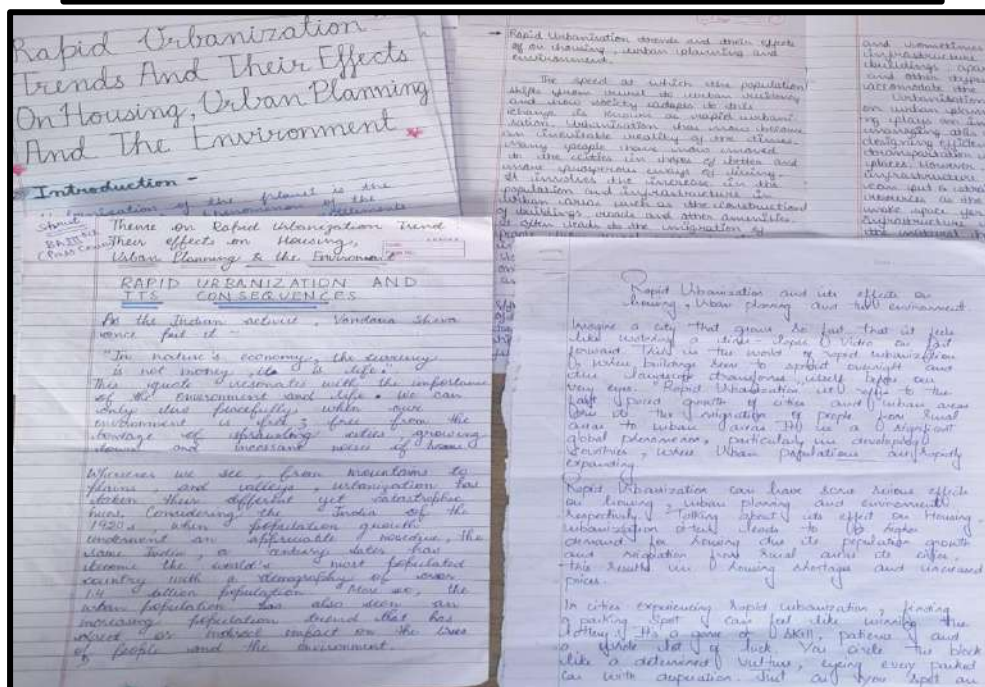 Rapid Urbanization
Trends And Their Effects
On Housing, Urban Planning
And The Environment
Introduction -
of the planet is the
phenomenon of the
→ Rapid Urbanisation trends and their effects
of on housing, urban planning and
environment.
The speed at which the population
shifts from rural to urban residency
and how society adapts to this
change is known as rapid urbani
sation. Urbanisation has now become
an inevitable reality of the times.
Many people have now moved
to the cities in hopes of better and
more prosperous ways of living.
It involves the increase in the
population and infrastructure in
urban areas such as the construction
of buildings, roads and other amenities.
It often leads to the emigration of
and sometimes
infrastructure
buildings, apar
and other
accomodate the
Urbanisation
on urban plann
ng plays an im
managing
designing efficien
transportation
places. However
infrastructure
can put a
make space for
infrastructure
the natural
Theme on Rapid Urbanization Trend
Their effects on Housing,
Urban Planning & the Environment
RAPID URBANIZATION AND
ITS CONSEQUENCES
As the Indian activist, Vandana Shiva
once put it
"In nature's economy, the currency
is not money, it is life".
This quote resonates with the importance
of the environment and life. We can
only live peacefully, when our
environment is free; free from the
bondage of sprawling cities, growing
towns and incessant noises of
Wherever we see, from mountains to
plains, and valleys, urbanization has
taken their different yet catastrophic
turns. Considering the India of the
1920s, when population growth
underwent an appreciable nosedive, the
same India, a century later has
become the world's most populated
country with a demography of over
1.4 billion population. More so, the
urban population has also seen an
increasing population trend that has
direct or indirect impact on the lives
of people and the environment.
Rapid Urbanization and its effects on
housing, Urban planning and the environment.
Imagine a city that grows so fast that it feels
like watching a time-lapse video on fast
forward. This is the world of rapid urbanization
where buildings seem to sprout overnight and
the landscape transforms itself before our
very eyes. "Rapid Urbanization" refers to the
fast paced growth of cities and urban areas
due to the migration of people from rural
areas to urban areas. It is a significant
global phenomenon, particularly in developing
countries, where Urban populations are rapidly
expanding.
Rapid Urbanization can have some serious effects
on housing, urban planning and environment
respectively. Talking about its effect on Housing-
urbanization often leads to higher
demand for housing due to population growth
and migration from rural areas to cities.
This results in housing shortages and increased
prices.
In cities experiencing rapid urbanization, finding
a parking spot can feel like winning the
lottery. It's a game of skill, patience and
a whole lot of luck. You circle the block
like a determined vulture, eyeing every parked
car with desperation. Just as you spot an